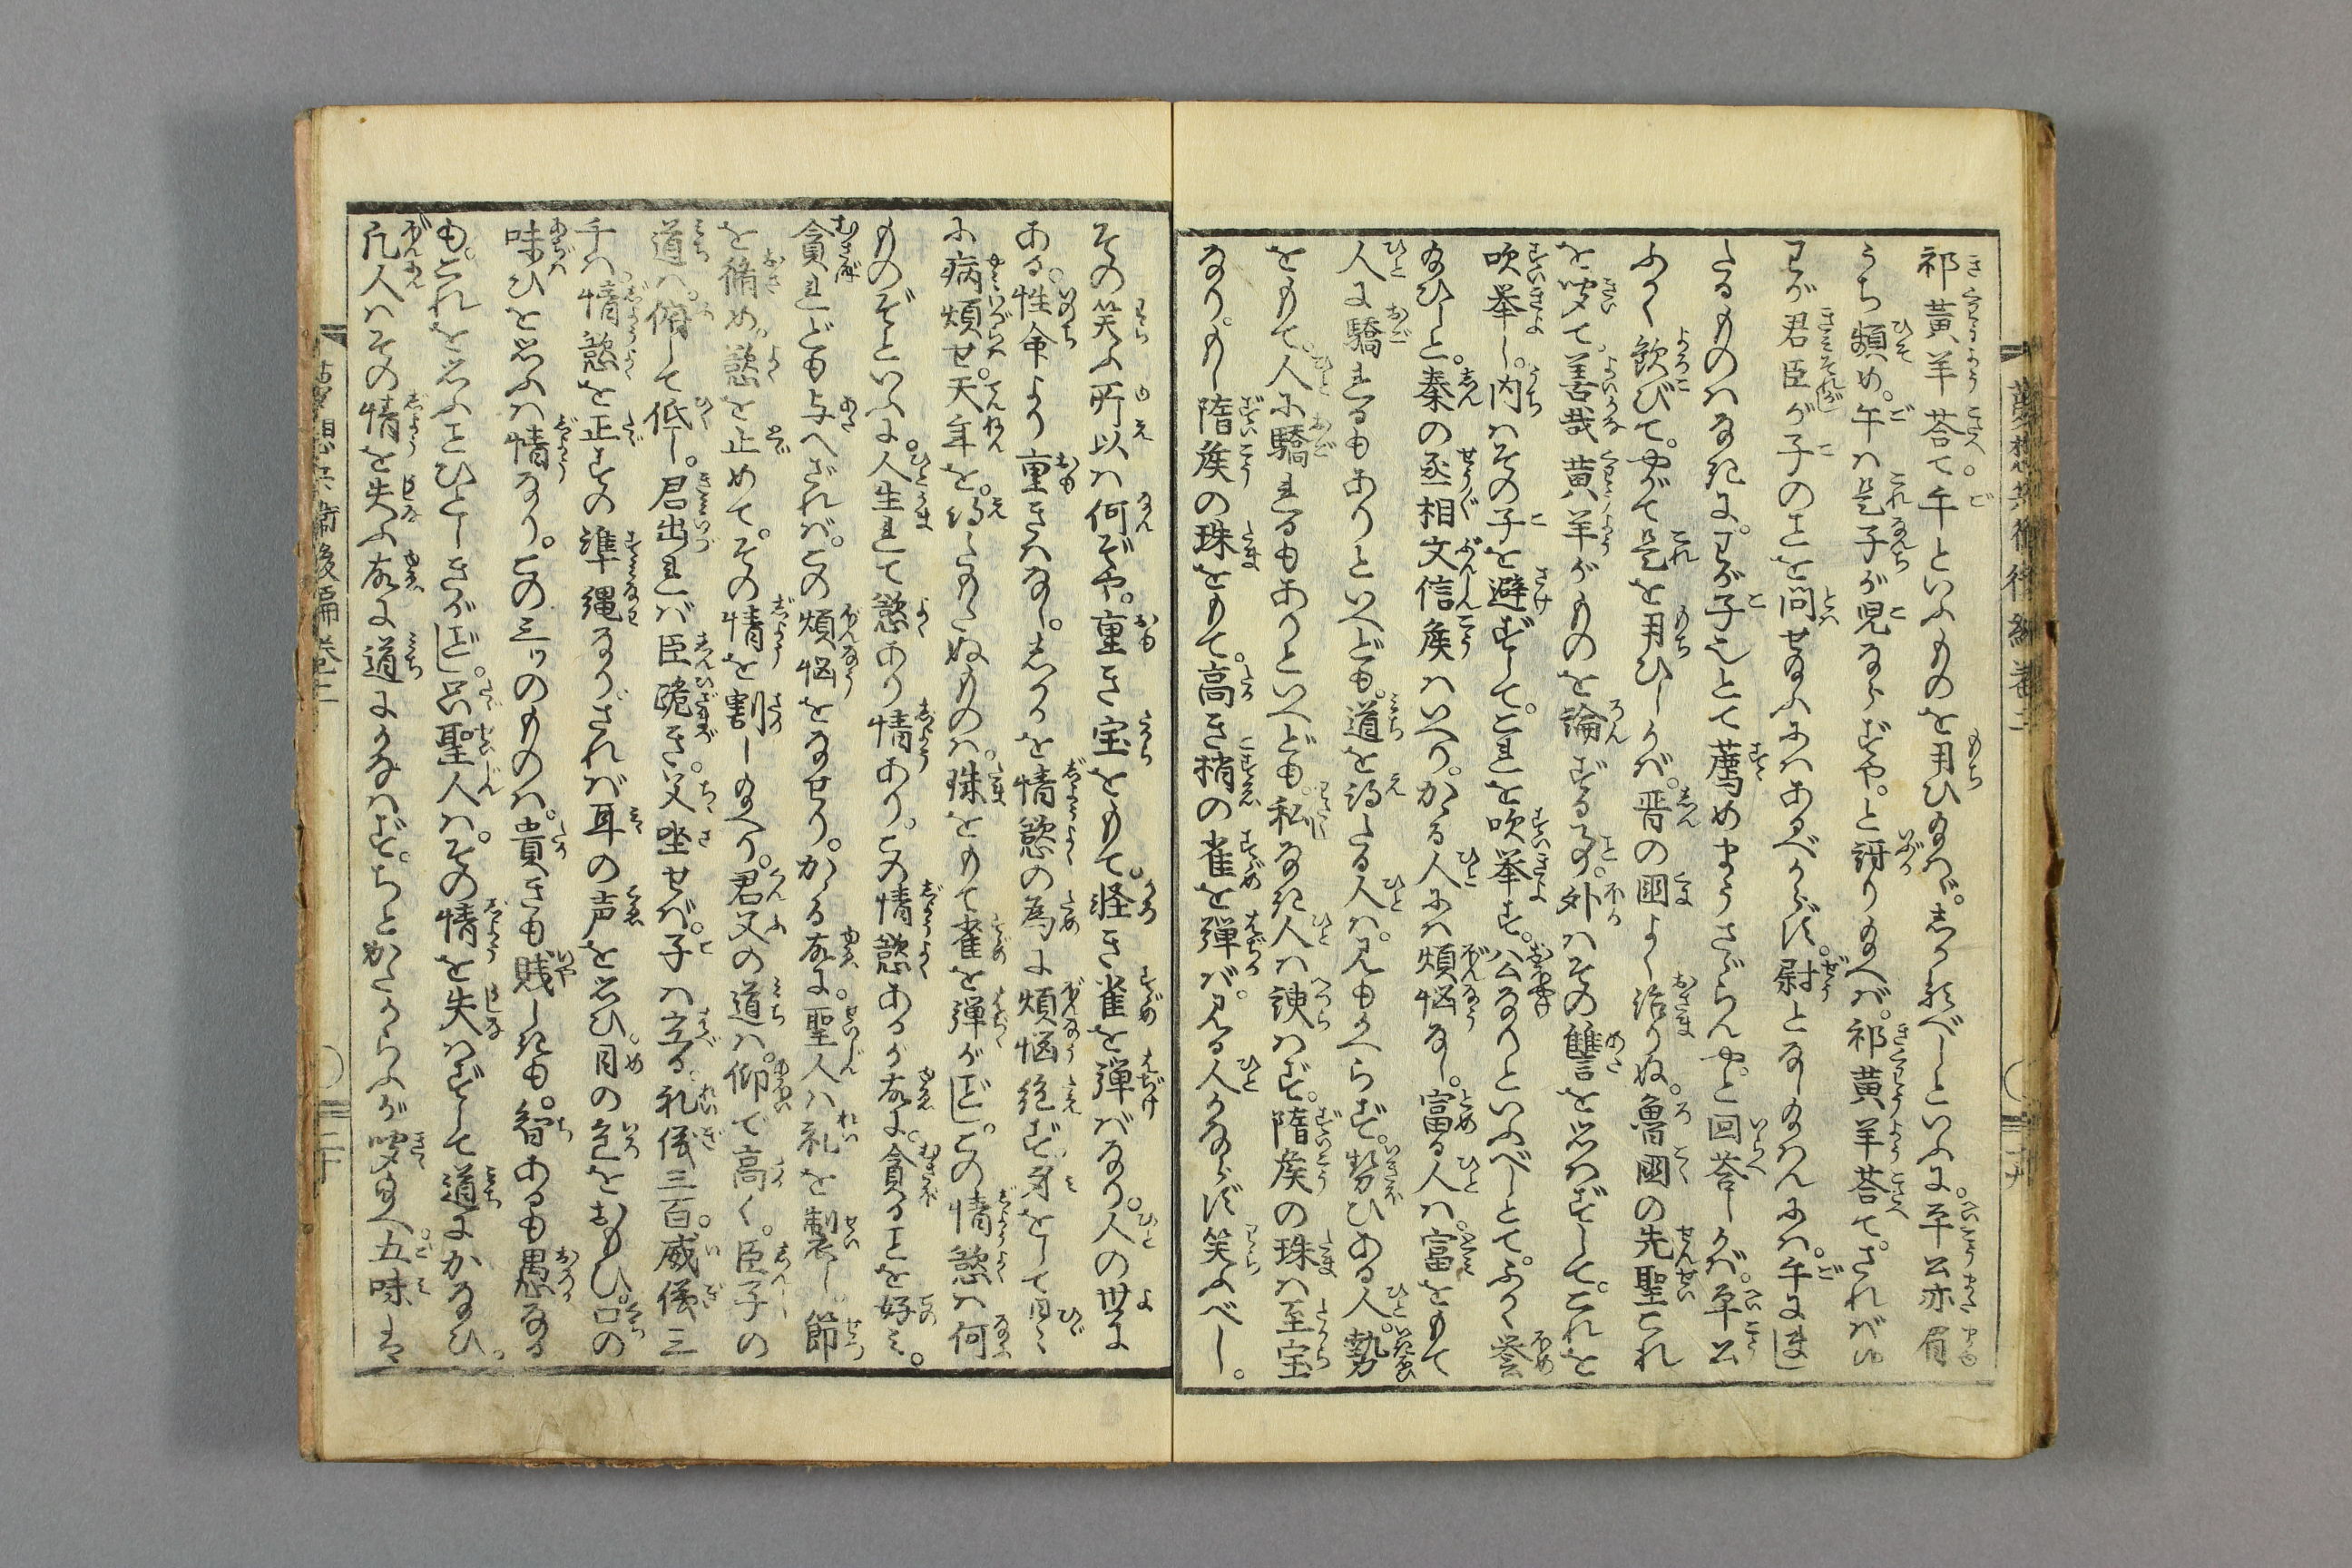 夢想兵衛後編巻三
祁黄羊荅て午といふものを用ひ給へ。しかるべしといふに。平公亦眉
うち顰め。午は是子が児ならずや。と訝り給へば。祁黄羊荅て。されば
わが君臣が子のことを問せ給ふにはあるべからず。尉となし給はんには。午にまし
たるものはなきに。わが子也とて薦めまうさゞらんやと回荅しかば。平公
ふかく歓びて。やがて是を用ひしかば。晋の国よく治りぬ。魯国の先聖これ
を聞て。善哉黄羊がものを論ずる事。外はその讐を思はずして。これを
吹挙し。内はその子を避ずして。これを吹挙す。公なりといふべしとて。ふかく誉
給ひしと。秦の丞相文信侯はいへり。かゝる人には煩悩なし。富る人は。富をもて
人に驕れるもありといへども。道を得たる人は。見もかへらず。勢ひある人。勢
をもて。人に驕れるもありといへども。私なき人は諛はず。隋侯の珠は至宝
なり。もし隋侯の珠をもて。高き梢の雀を弾ば。見る人かならず笑ふべし。
その笑ふ所以は何ぞや。重き宝をもて。軽き雀を弾ばなり。人の世に
ある。性命より重きはなし。しかるを情慾の為に煩悩絶ず。身をして日々
に病煩せ。天年を。得たもたぬものは。珠をもて雀を弾がごとし。この情慾は何
ものぞといふに。人生れて慾あり情あり。この情慾あるが故に。貪ることを好み。
貪れども与へざれば。この煩悩をなせり。かゝる故に。聖人は礼を制し。節
を脩め。慾を止めて。その情を割し給へり。君父の道は。仰で高く。臣子の
道は。俯して低し。君出れば臣跪き。父坐せば。子は立る。礼儀三百。威儀三
千は。情慾を正すの準縄なり。されば耳の声を思ひ。目の色をおもひ。口の
味ひを思ふは情なり。この三ッのものは。貴きも賎しきも。智あるも愚なる
も。これを思ふことひとしきがごとし。只聖人は。その情を失はずして道にかなひ。
凡人はその情を失ふ故に道にかなはず。ちとかたからふが聞給へ。五味は
夢想兵衛後編巻三
二十